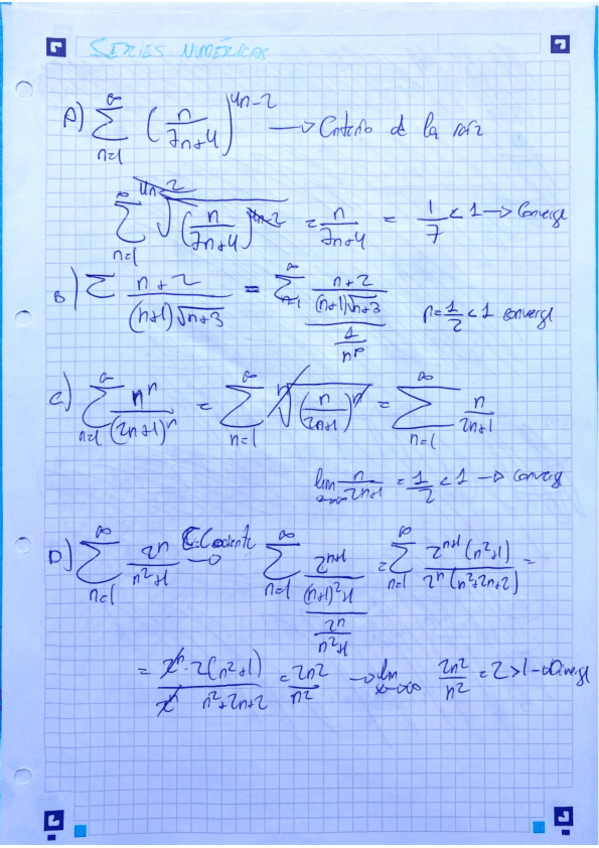 SERIES NUMÉRICAS
A) ∑_{n=1}^{∞} (n/(7n+4))^{4n-2} → Criterio de la raíz
∑_{n=1}^{∞} \sqrt[4n-2]{(n/(7n+4))^{4n-2}} = n/(7n+4) = 1/7 < 1 → Converge
B) ∑ (n+2)/((n+1)√(n+3)) = ∑_{n=1}^{∞} ((n+2)/((n+1)√(n+3)))/(1/n^p) p=1/2 < 1 converge
C) ∑_{n=1}^{∞} n^n/(2n+1)^n = ∑_{n=1}^{∞} \sqrt[n]{(n/(2n+1))^n} = ∑_{n=1}^{∞} n/(2n+1)
lim_{x→∞} n/(2n+1) = 1/2 < 1 → Converge
D) ∑_{n=1}^{∞} 2^n/(n^2+1) C.Cociente → ∑_{n=1}^{∞} (2^{n+1}/((n+1)^2+1))/(2^n/(n^2+1)) = ∑_{n=1}^{∞} 2^{n+1}(n^2+1)/(2^n(n^2+2n+2)) =
= 2^n·2(n^2+1)/(2^n n^2+2n+2) = 2n^2/n^2 → lim_{x→∞} 2n^2/n^2 = 2 > 1 → Diverge